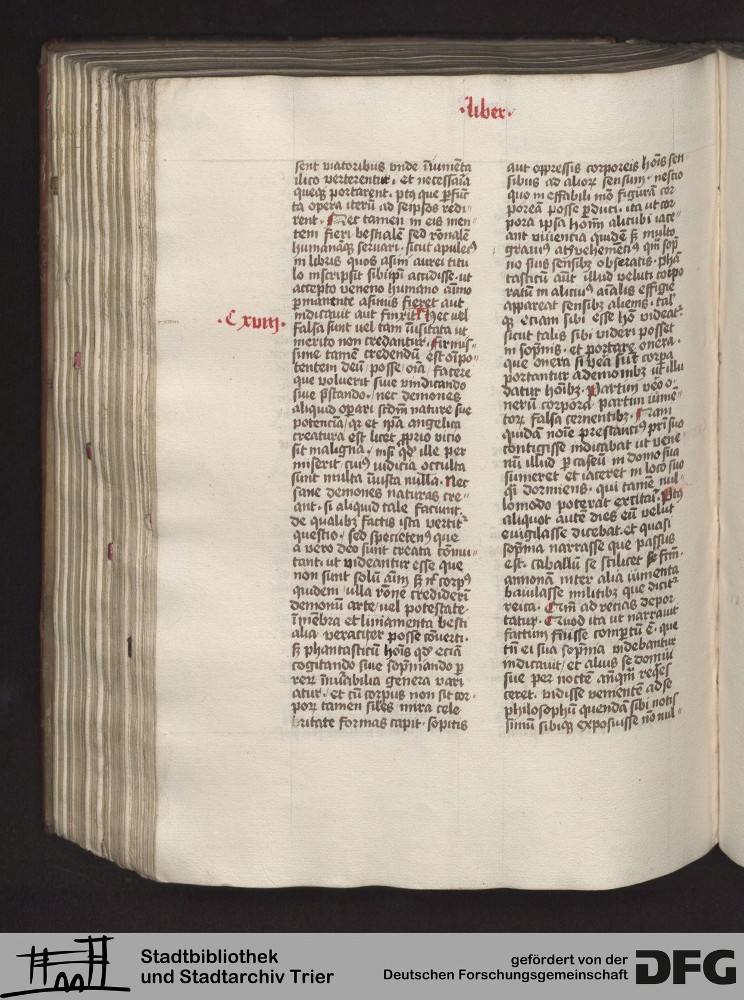 ·liber·
sent viatoribus vnde iumēta
ilico verterentur· et necessaria
queqʒ portarent· ptqʒ que perfūc
ta opera iterū ad seipsos redi
rent· Nec tamen in eis men-
tem fieri bestialē sed rōnalē
humanāqʒ seruari· sicut apuleiꝰ
in libris quos asini aurei titu
lo inscripsit sibi ipi accidisse· ut
accepto veneno humano aīmo
permanente asinus fieret aut
·Cxviij·
indicauit aut finxit· Hec uel
falsa sunt vel tam īusitata ut
merito non credantur· firmis-
sime tamē credendū est oīpo-
tentem deū posse oīa facere
que voluerit siue vindicando
siue p̄stando· nec demones
aliquid operari scdm nature sue
potenciā qʒ et ipā angelica
creatura est licet proprio vicio
sit maligna· nisi qd ille per
miserit cuiꝰ iudicia occulta
sunt multa iniusta nulla· Nec
sane demones naturas cre-
ant· si aliquid tale faciunt·
de qualibʒ factis ista vertit
questio· sed specietenꝰ que
a vero deo sunt creata cōmu-
tant· ut videantur esse que
non sunt Non solū aīm sʒ nc corpꝰ
quidem ulla rōne crediderī
demonū arte uel potestate
ī mēbra et liniamenta besti
alia veraciter posse cōuerti·
sʒ phantasticū hoīs qd eciā
cogitando siue sopniando per
rerum inūabilia genera vari
atur· et cū corpus non sit cor-
porum tamen siles mira cele
britate formas capit· sopitis
aut oppressis corporeis hoīs sen-
sibus ad alioꝝ sensum· nescio
quo ineffabili mō figurā cor
poreā posse perduci· ita ut cor
pora ipsa hoīm alicubi iace-
ant viuencia quidē sʒ multo
grauiꝰ atqʒ vehemēciꝰ qm sop
no suis sensibʒ obseratis· phā
tasticū aūt illud veluti corpo
ratū in aliciuꝰ aīalis effigie
appareat sensibʒ alienis· tal
qʒ eciam sibi esse hō videat·
sicut talis sibi videri posset
in sopnis· et portare onera·
que onera si vera sūt corpa
portantur a demonibʒ ut illu
datur hoībʒ· Partim vero o-
nerū corpora partim iume-
torum falsa cernentibʒ· Nam
quidā noīe prestanciꝰ pr̄i suo
contigisse indicabat ut vene
nū illud per caseū in domo sua
sumeret et iaceret in loco suo
qsi dormiens· qui tamē nul-
lomodo poterat excitari· Ptqʒ
aliquot autē dies eū velut
euigilasse dicebat· et quasi
sopnia narrasse que passus
est· caballū se scilicet frm·
annonā inter alia iumenta
baiulasse militibʒ que dicit
retica· Qm ad recias depor
tatur· Quod ita ut narrauit
factum fuisse compertū ē· que
tn̄ ei sua sopnia videbantur
Indicauit et alius se domui
sue per noctē anteqm reqes
ceret· vidisse venientē ad se
philosophū quendā sibi notis
simū sibiqʒ exposuisse nōnul-
Stadtbibliothek
und Stadtarchiv Trier
gefördert von der
Deutschen Forschungsgemeinschaft
DFG